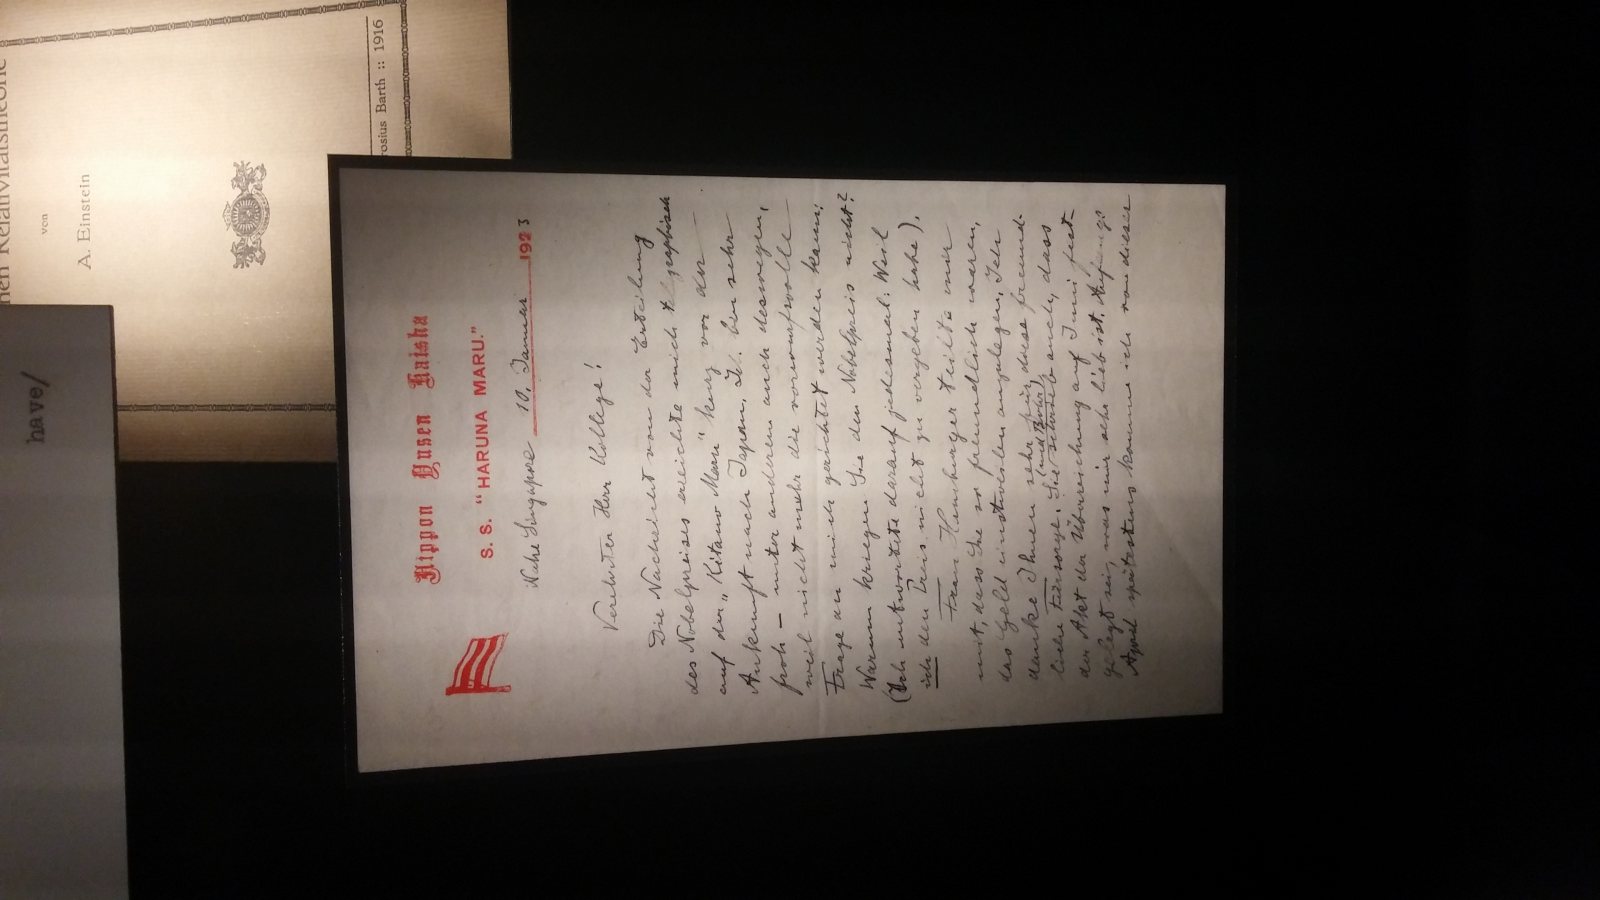 have/
von
A. Einstein
rosius Barth :: 1916
Nippon Yusen Kaisha
S. S. “HARUNA MARU.”
Nahe Singapore 10. Januar 1923
Verehrter Herr Kollege!
Die Nachricht von der Erteilung
des Nobelpreises erreichte mich telegraphisch
auf der „Kitano Maru“ kurz vor der
Ankunft nach Japan. Ich bin sehr
froh — unter anderem auch deswegen,
weil nicht mehr die vorwurfsvolle
Frage an mich gerichtet werden kann:
Warum kriegen Sie den Nobelpreis nicht?
(Ich antwortete darauf jedesmal: Weil
ich den Preis nicht zu vergeben habe).
Frau Hamburger teilte mir
mit, dass Sie so freundlich waren,
das Geld einstweilen anzulegen. Ich
danke Ihnen sehr für diese freund-
liche Fürsorge. Sie schrieb auch, dass
der Akt der Überreichung auf Juni fest-
gelegt sei, was mir sehr lieb ist. Anfangs
April spätestens komme ich von dieser